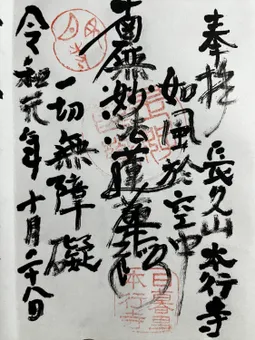 奉拝 長久山 本行寺
如風於空中
南無妙法蓮華経
一切無障礙
令和元年十月二十八日
日暮里
本行寺